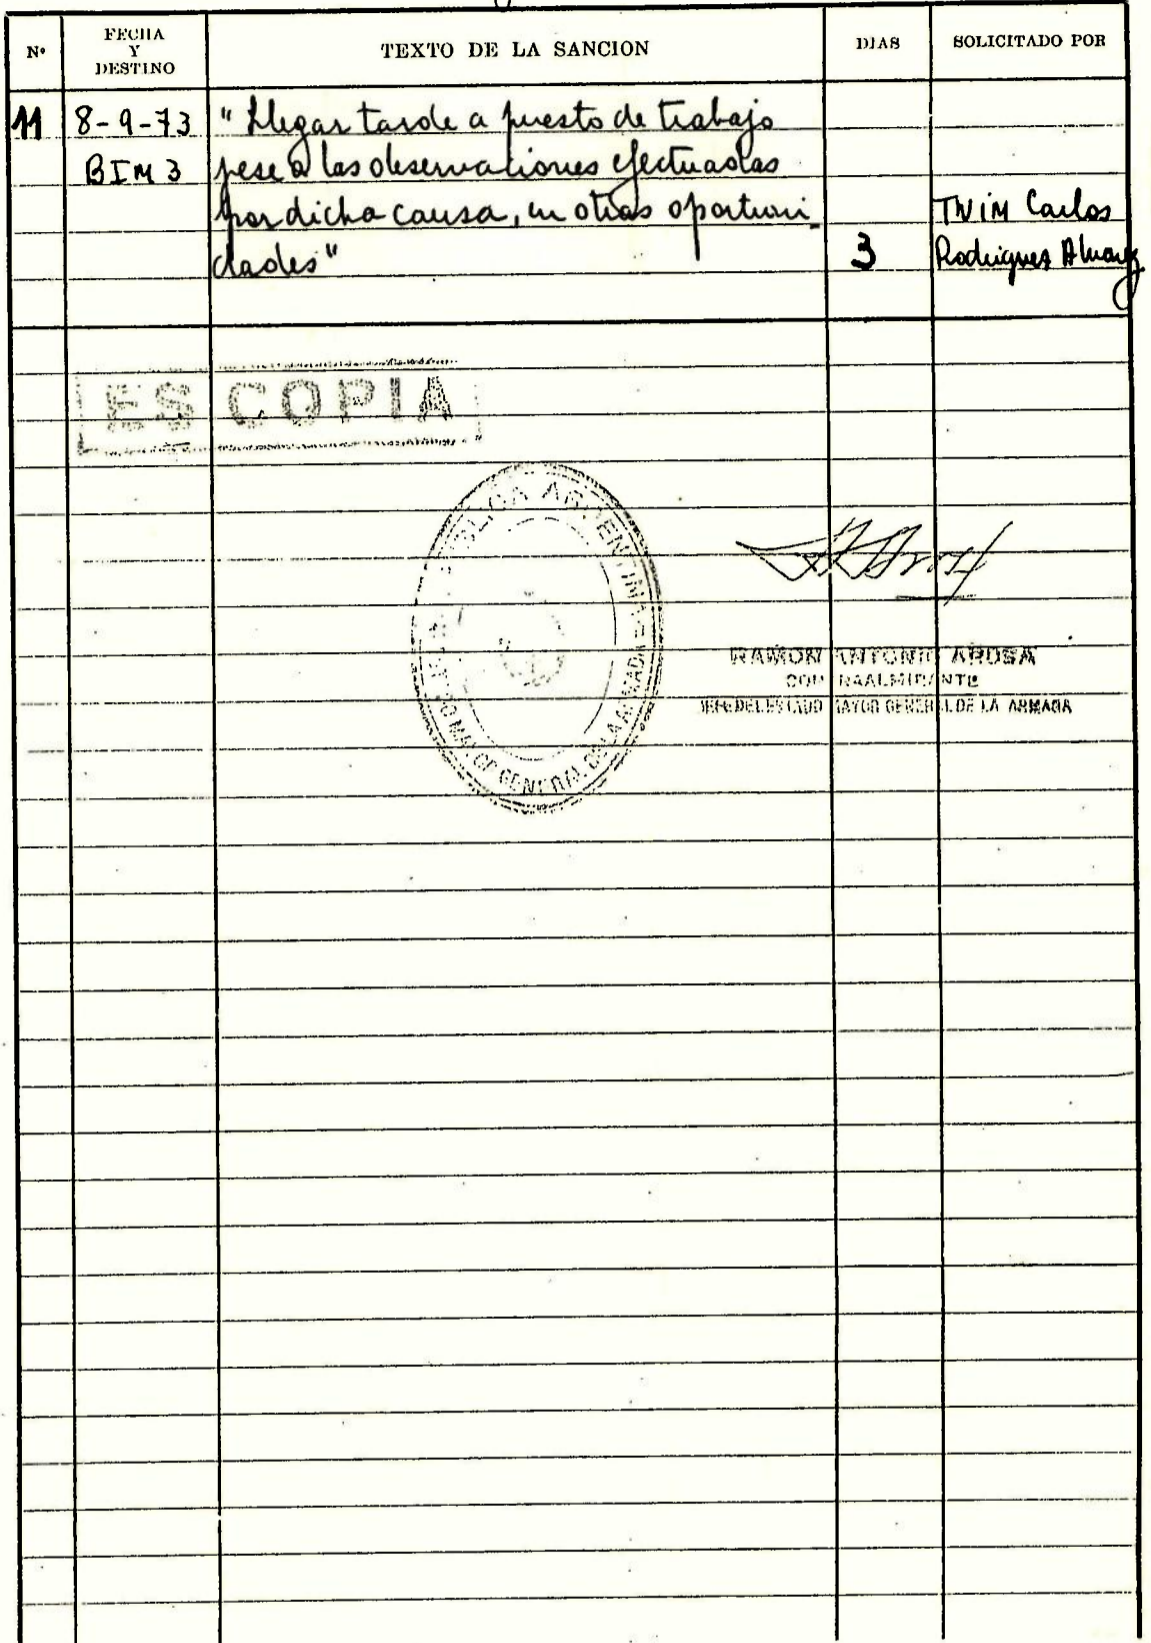 Nº
FECHA
Y
DESTINO
TEXTO DE LA SANCION
DIAS
SOLICITADO POR
11
8-9-73
BIM 3
"Llegar tarde a puesto de trabajo
pese a las observaciones efectuadas
por dicha causa, en otras oportuni-
dades"
3
TNIM Carlos
Rodriguez Alvarez
ES COPIA
REPUBLICA ARGENTINA
ESTADO MAYOR GENERAL DE LA ARMADA
RAMON ANTONIO AROSA
CONTRAALMIRANTE
JEFE DEL ESTADO MAYOR GENERAL DE LA ARMADA